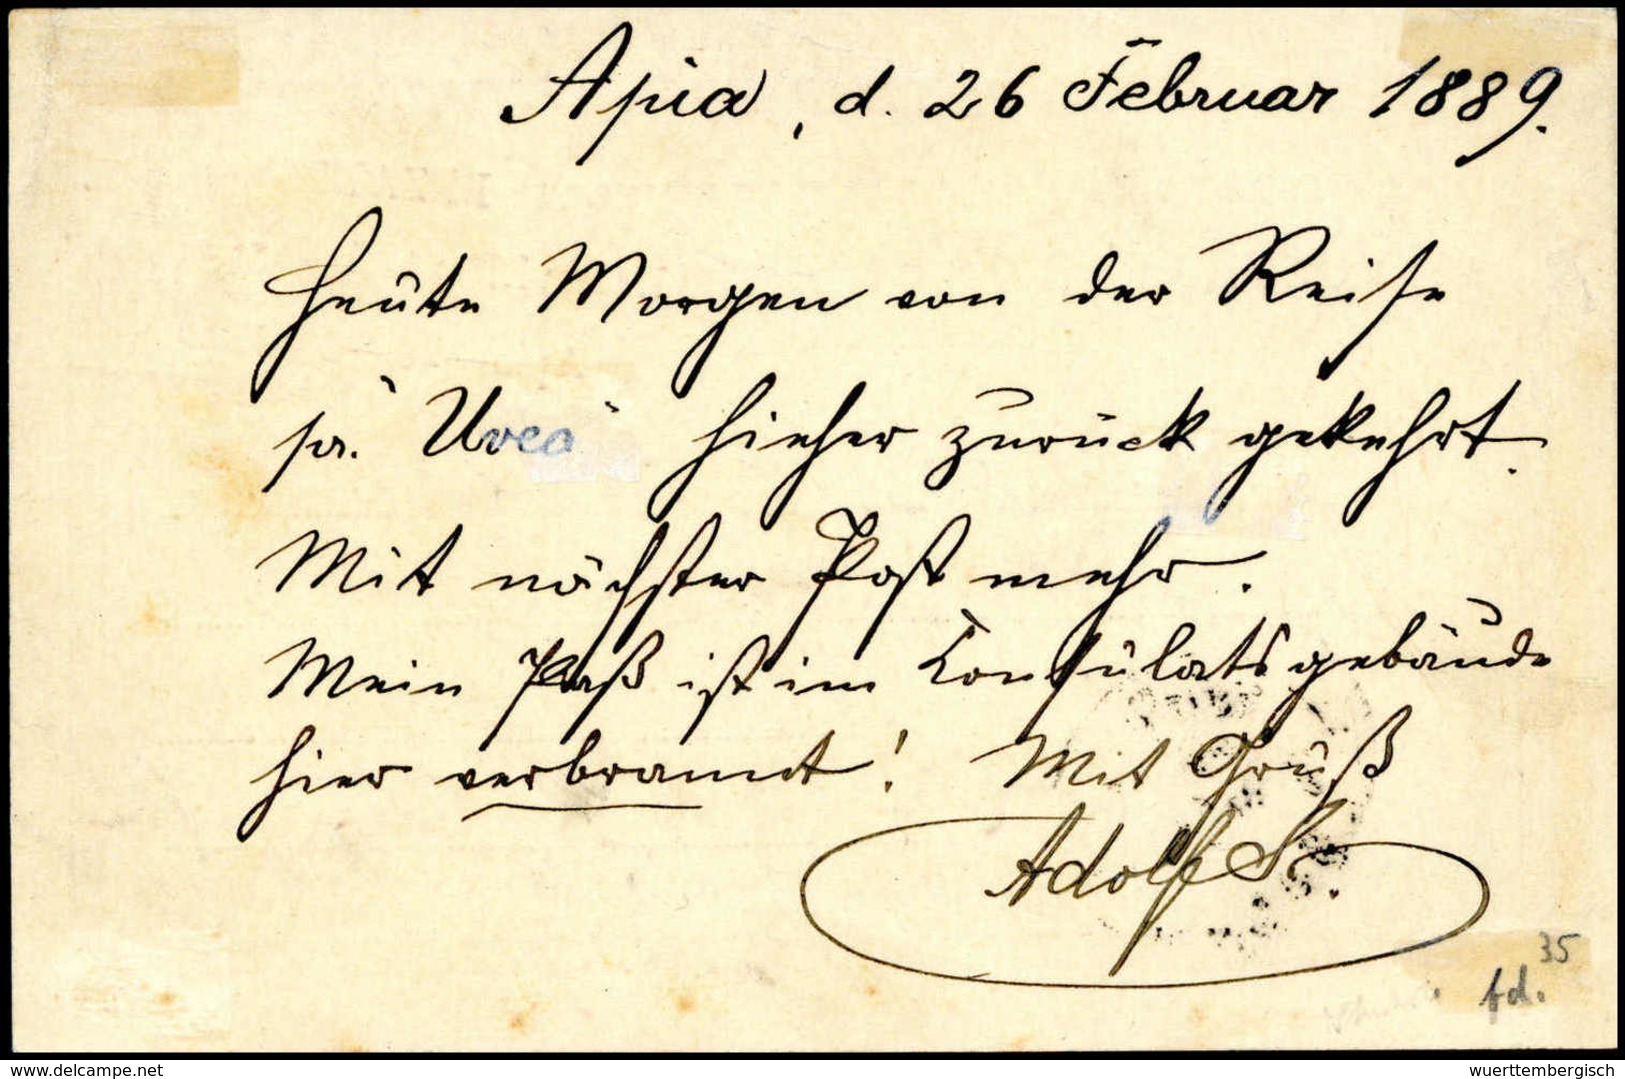 Apia, d. 26 Februar 1889.
Heute Morgen von der Reise
pr. "Uvea" hieher zurück gekehrt.
Mit nächster Post mehr.
Mein Paß ist im Consulatsgebäude
hier verbrannt! Mit Gruß
Adolf S.
35
fd.
www.delcampe.net wuerttembergisch